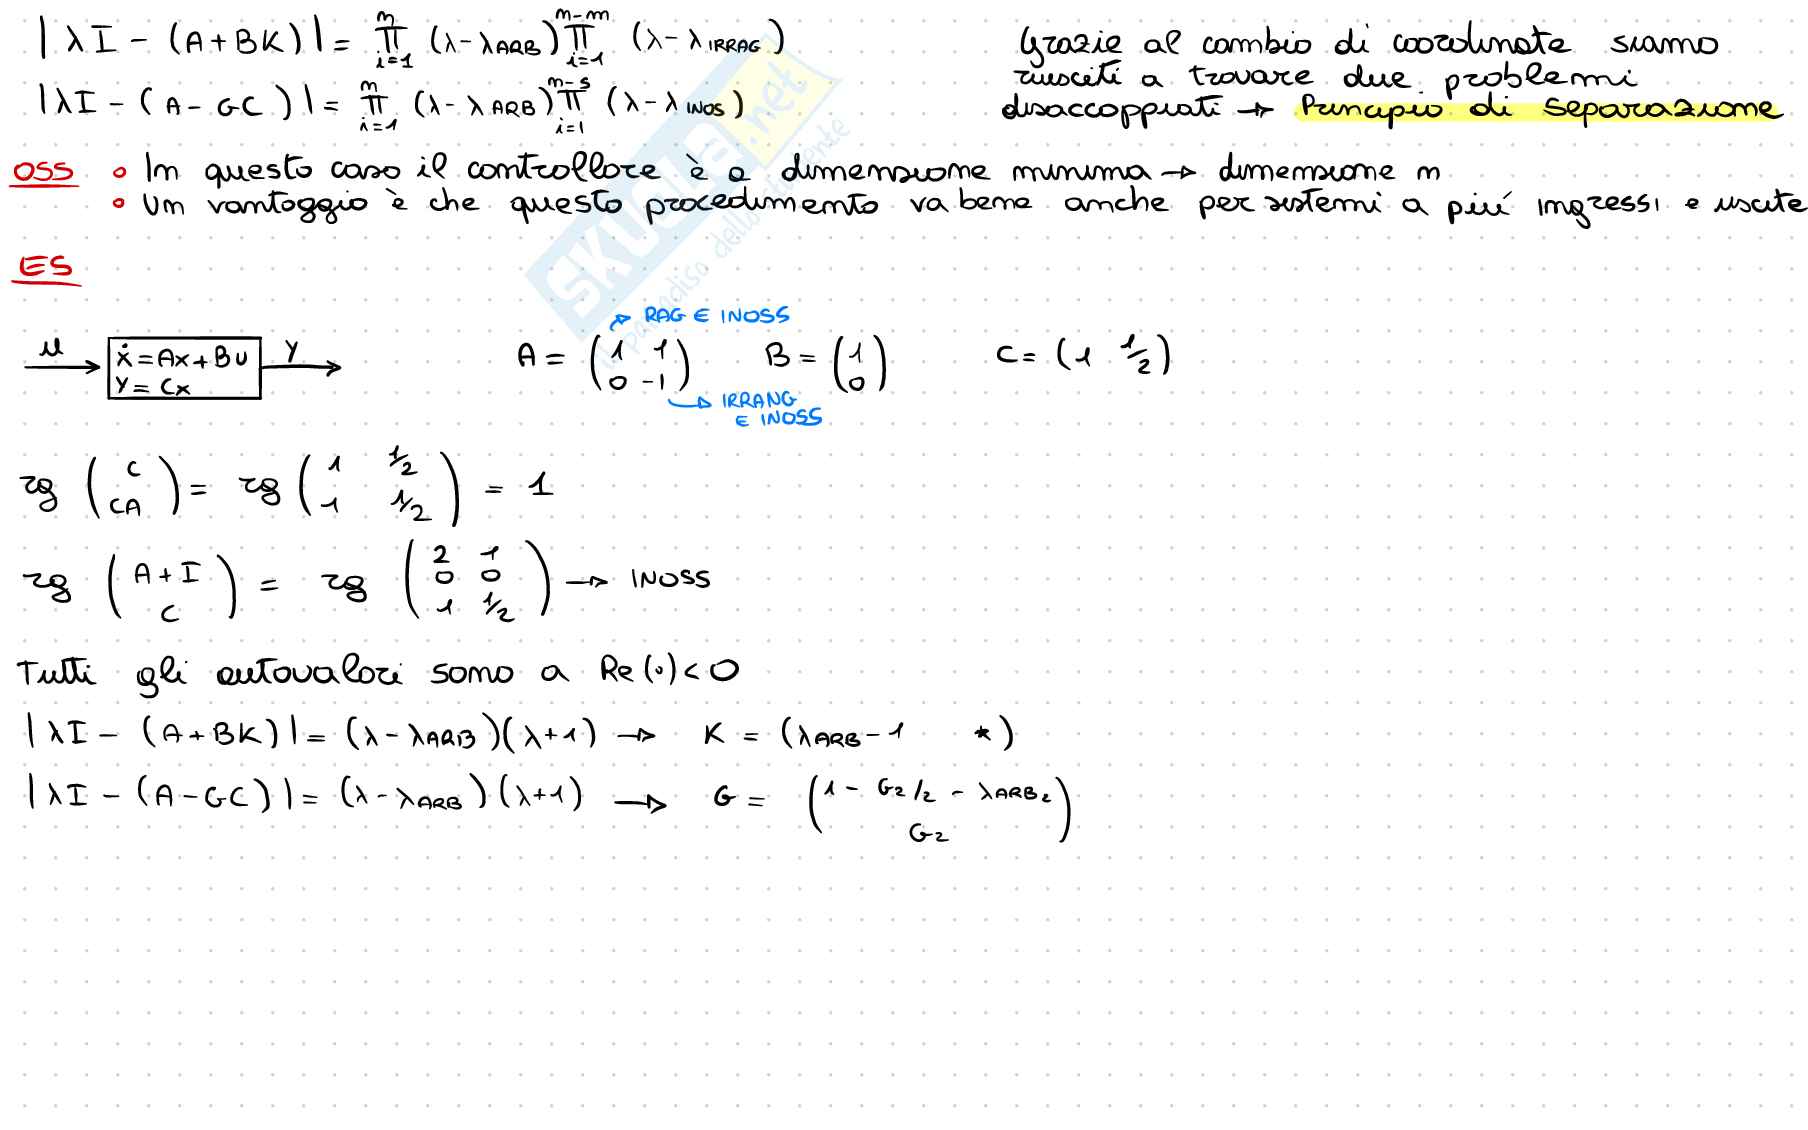 |λI - (A+BK)| = ∏_{i=1}^{m} (λ-λ_ARB) ∏_{i=1}^{n-m} (λ-λ_IRRAG)
|λI - (A-GC)| = ∏_{i=1}^{m} (λ-λ_ARB) ∏_{i=1}^{n-s} (λ-λ_INOS)
Grazie al cambio di coordinate siamo
riusciti a trovare due problemi
disaccoppiati → Principio di Separazione
OSS • In questo caso il controllore è a dimensione minima → dimensione n
• Un vantaggio è che questo procedimento va bene anche per sistemi a più ingressi e uscite
ES
→ RAG E INOSS
u → ẋ = Ax + Bu → y
y = Cx
A = (1 1; 0 -1) B = (1; 0) C = (1 1/2)
→ IRRANG
E INOSS
rg (C; CA) = rg (1 1/2; 1 1/2) = 1
rg (A+I; C) = rg (2 1; 0 0; 1 1/2) → INOSS
Tutti gli autovalori sono a Re(·)<0
|λI - (A+BK)| = (λ-λ_ARB)(λ+1) → K = (λ_ARB - 1 *)
|λI - (A-GC)| = (λ-λ_ARB)(λ+1) → G = (1 - G2/2 - λ_ARB2; G2)
SKUOLA.net
il paradiso dello studente